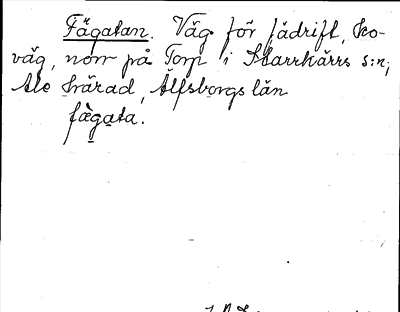 Fägatan. Väg för fädrift, ko-
väg, norr på Torp i Starrkärrs s:n,
Ale härad, Älfsborgs län
fägata.